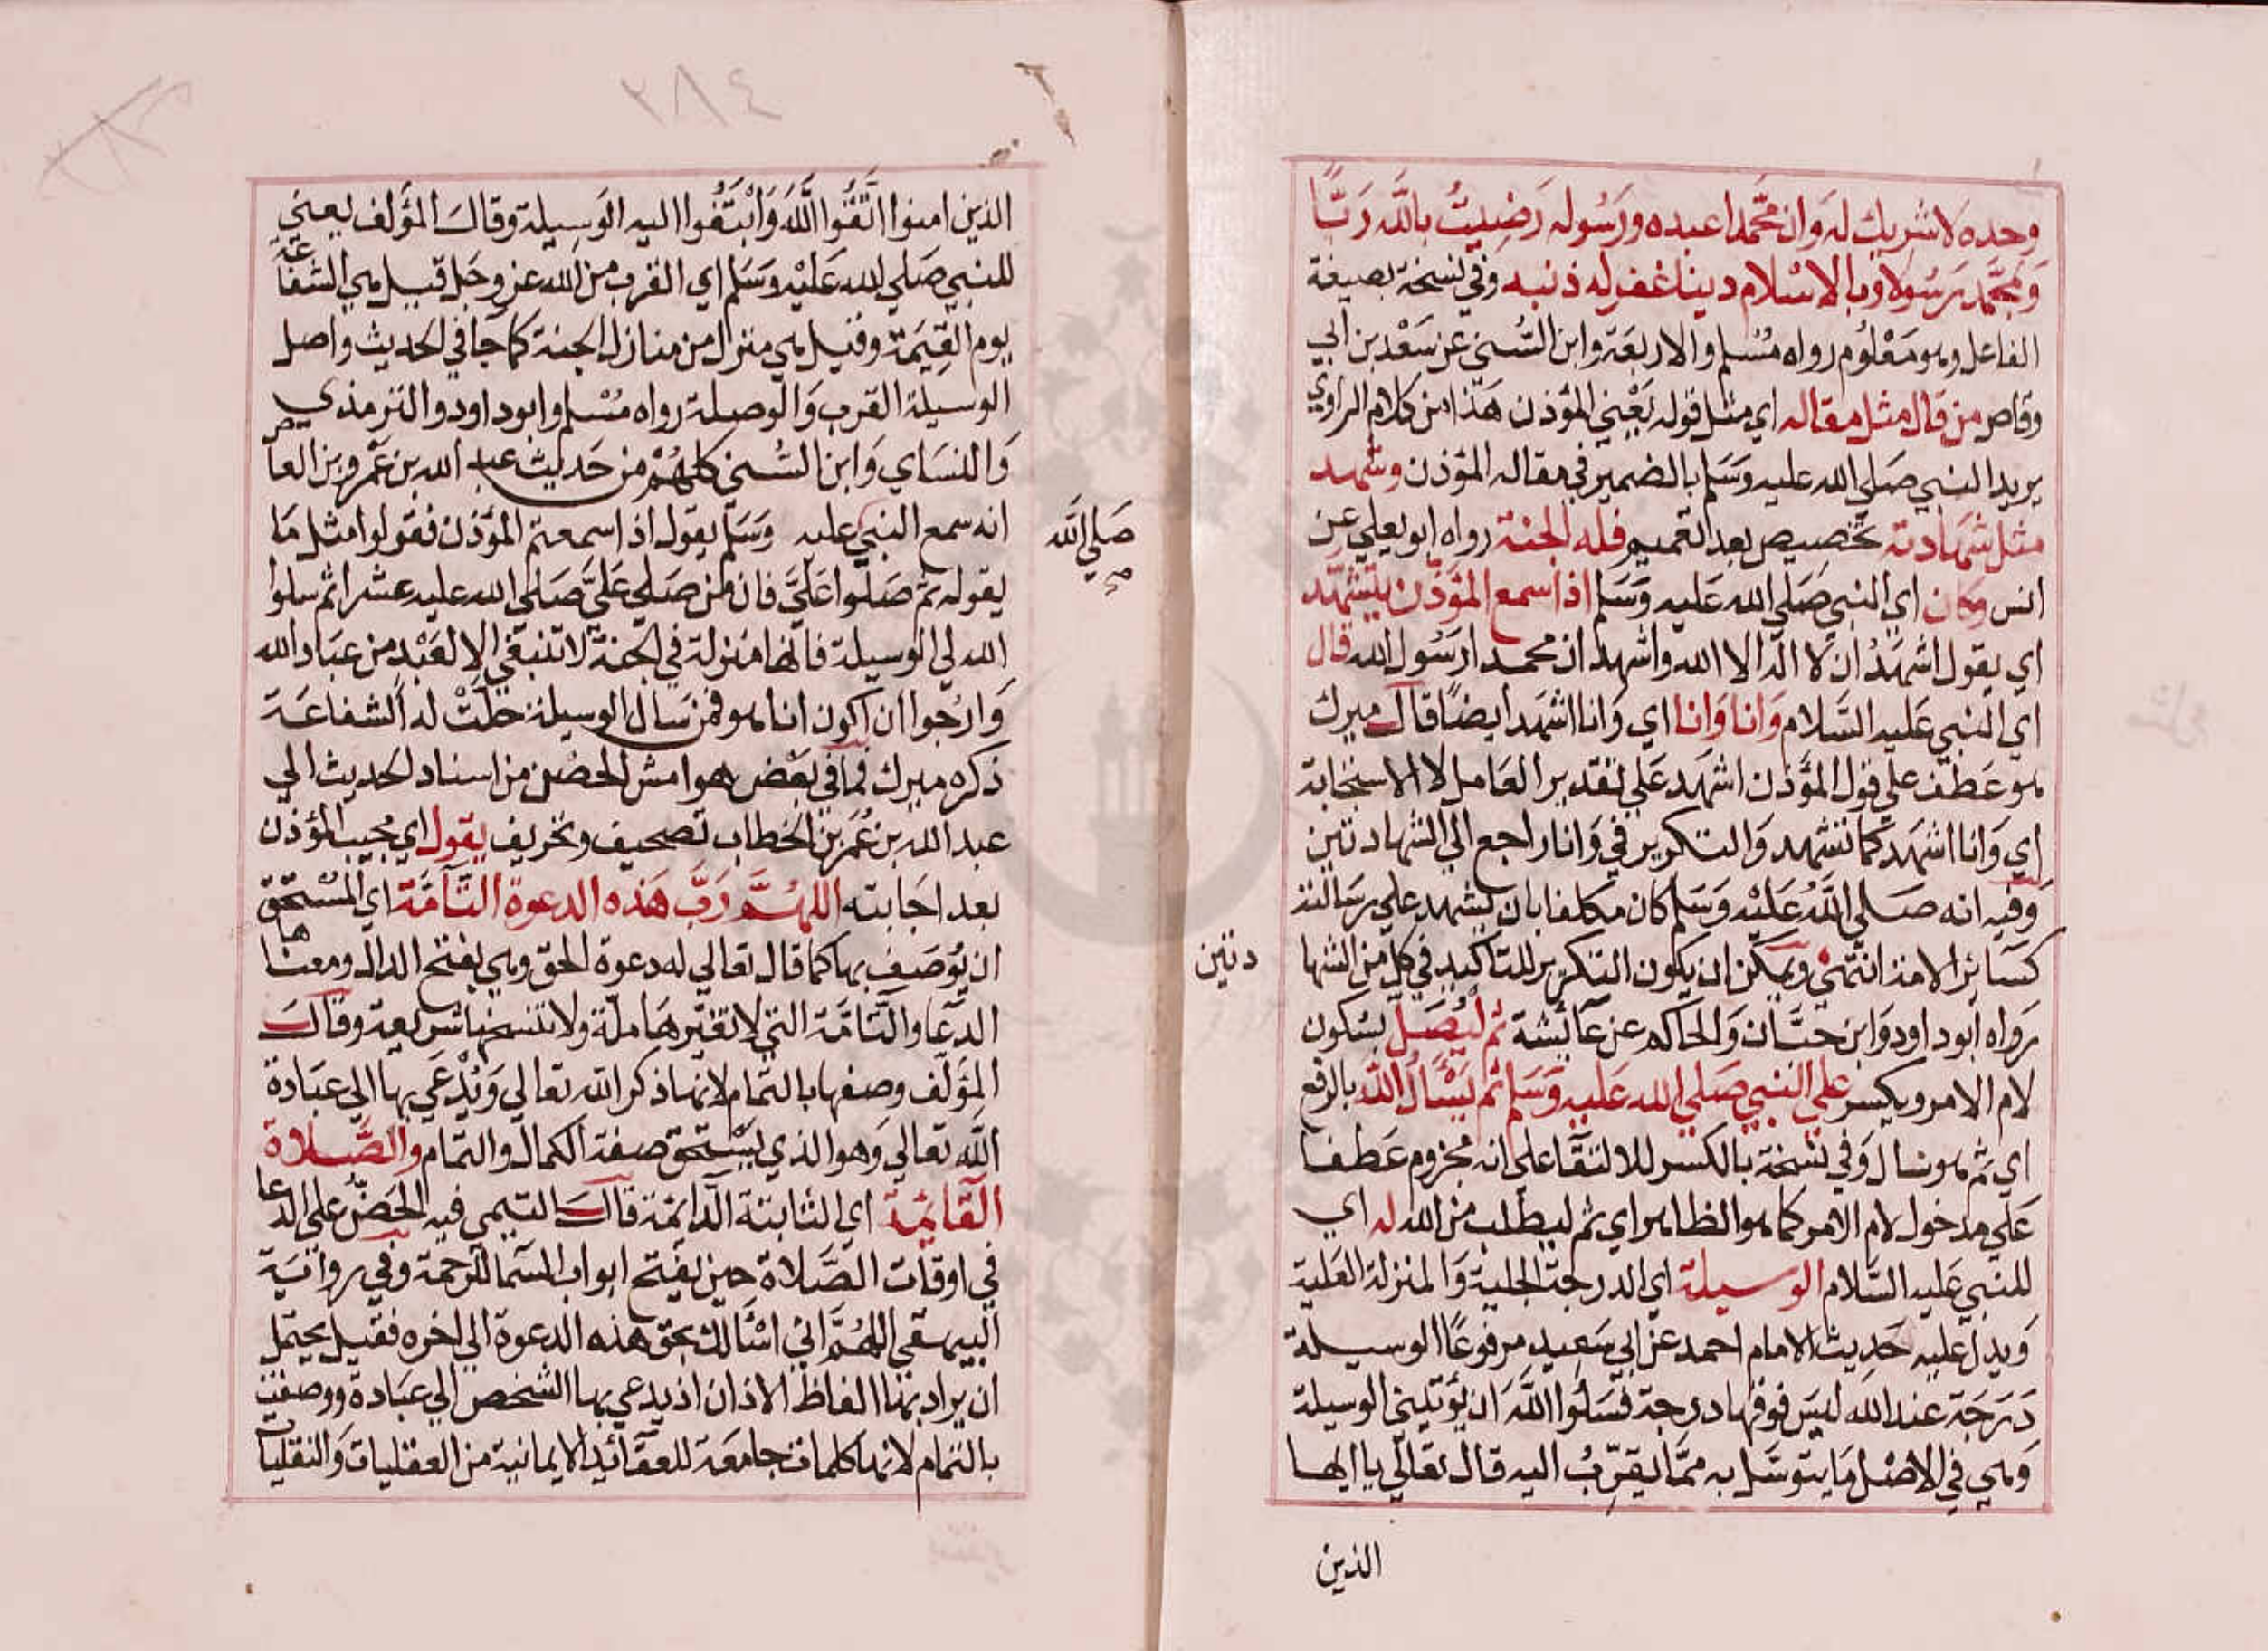 وحده لا شريك له وان محمدا عبده ورسوله رضيت بالله ربّا
وبمحمد رسولا وبالاسلام دينا غفر له ذنبه وفي نسخة بصيغة
الفاعل وهو معلوم رواه مسلم والاربعة وابن السني عن سعد بن ابي
وقاص من قال مثل مقاله اي مثل قوله يعني المؤذن هذا من كلام الراوي
يريد النبي صلي الله عليه وسلم بالضمير في مقاله المؤذن وشهد
مثل شهادته تخصيص بعد التعميم فله الجنة رواه ابو يعلي عن
انس وكان اي النبي صلي الله عليه وسلم اذا سمع المؤذن يتشهد
اي يقول اشهد ان لا اله الا الله واشهد ان محمدا رسول الله قال
اي النبي عليه السلام وانا وانا اي وانا اشهد ايضا قال ميرك
هو عطف علي قول المؤذن اشهد علي تقدير العامل لا الاستجابة
اي وانا اشهد كما تشهد والتكرير في وانا راجع الي الشهادتين
وفيه انه صلي الله عليه وسلم كان مكلفا بان يشهد علي رسالته
كسائر الامة انتهي ويمكن ان يكون التكرير للتاكيد في كل من الشها
دتين
رواه ابو داود وابن حبان والحاكم عن عائشة ثم ليصل بسكون
لام الامر ويكسر علي النبي صلي الله عليه وسلم ثم يسأل الله بالرفع
اي ثم هو يسال وفي نسخة بالكسر للالتقا علي انه مجزوم عطفا
علي مدخول لام الامر كما هو الظاهر اي ثم ليطلب من الله له اي
للنبي عليه السلام الوسيلة اي الدرجة الجلية والمنزلة العلية
ويدل عليه حديث الامام احمد عن ابي سعيد مرفوعا الوسيلة
درجة عند الله ليس فوقها درجة فسلوا الله ان يؤتيني الوسيلة
وهي في الاصل ما يتوسل به مما يقرب اليه قال تعالي يا ايها
الذين
٢٨٤
الذين امنوا اتقوا الله وابتغوا اليه الوسيلة وقال المؤلف يعني
للنبي صلي الله عليه وسلم اي القرب من الله عز وجل قيل هي الشفاعة
يوم القيمة وقيل هي منزل من منازل الجنة كما جا في الحديث واصل
الوسيلة القرب والوصلة رواه مسلم وابو داود والترمذي
والنساي وابن السني كلهم من حديث عبد الله بن عمرو بن العاص
انه سمع النبي عليه وسلم يقول اذا سمعتم المؤذن فقولوا مثل ما
صلي الله
صح
يقوله ثم صلوا علي فان من صلي علي صلي الله عليه عشرا ثم سلوا
الله لي الوسيلة فانها منزلة في الجنة لا تنبغي الا لعبد من عباد الله
وارجوا ان اكون انا هو فمن سال الوسيلة حلت له الشفاعة
ذكره ميرك فما في بعض هوامش الحصن من اسناد الحديث الي
عبد الله بن عمر بن الخطاب تصحيف وتحريف يقول اي مجيب المؤذن
بعد اجابته اللهم رب هذه الدعوة التامة اي المستحق
ان يوصف بها كما قال تعالي له دعوة الحق وهي بفتح الدال ومعناها
الدعا والتامة التي لا تغيرها ملة ولا تنسخها شريعة وقال
المؤلف وصفها بالتمام لانها ذكر الله تعالي ويدعي بها الي عبادة
الله تعالي وهو الذي يستحق صفة الكمال والتمام والصلاة
القائمة اي الثابتة الدائمة قال التيمي فيه الحض علي الدعا
في اوقات الصلاة حين يفتح ابواب السما للرحمة وفي رواية
البيهقي اللهم اني اسألك بحق هذه الدعوة الي اخره فقيل يحتمل
ان يراد بها الفاظ الاذان اذ يدعي بها الشخص الي عبادة ووصفت
بالتمام لانها كلمات جامعة للعقائد الايمانية من العقليات والنقليات